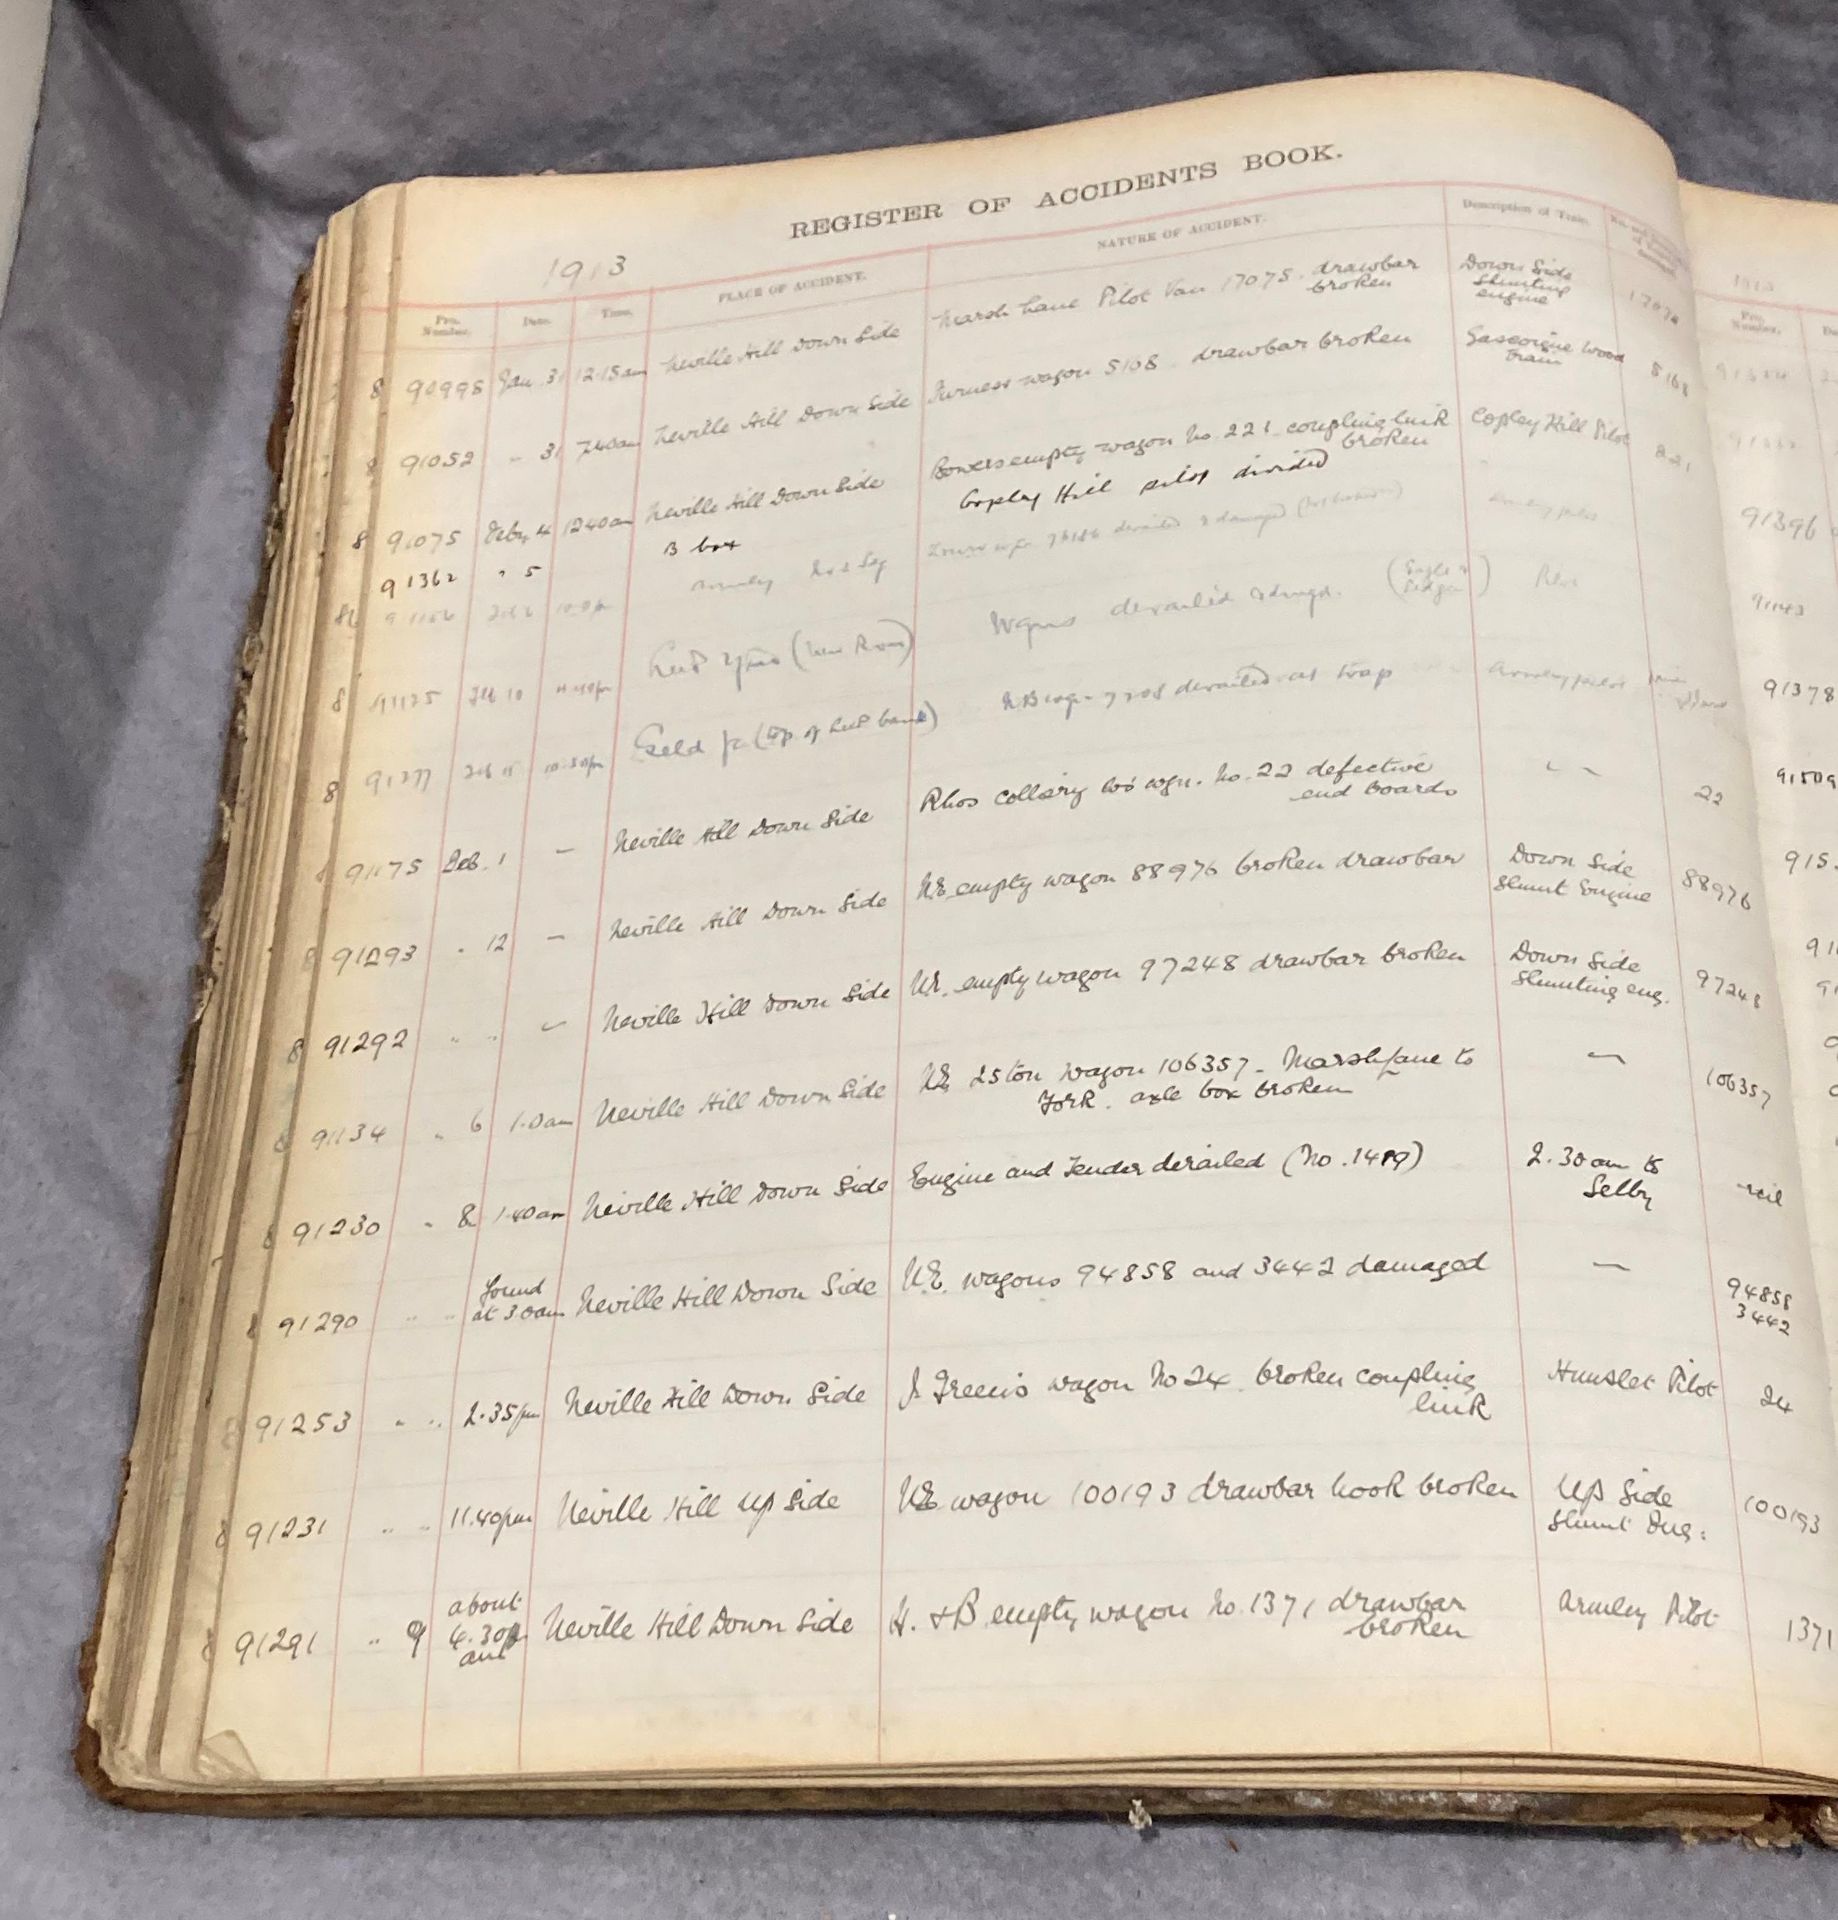 REGISTER OF ACCIDENTS BOOK.
1913
Pro. Number. Date. Time. PLACE OF ACCIDENT. NATURE OF ACCIDENT. Description of Train.
8 90998 Jan. 31 12.15am Neville Hill Down Side Marsh Lane Pilot Van 17075. drawbar broken Down Side Shunting engine
8 91052 " 31 7.40am Neville Hill Down Side Furness wagon 5108. drawbar broken Gascoigne Wood train 5108
8 91075 Feby 4 12.40am Neville Hill Down Side Bowers empty wagon No. 221 coupling link broken Copley Hill Pilot
91362 " 5 B box Copley Hill pilot divided
8 Feb 10 Wgns derailed & dmgd. Pilot
8 91277 Feb (top of bank) derailed at trap Armley pilot
91175 Feb. 1 — Neville Hill Down Side Rhos Colliery wgn. No. 22 defective end boards " " 22
8 91293 " 12 — Neville Hill Down Side N.E. empty wagon 88976 broken drawbar Down Side Shunt Engine 88976
8 91292 " " — Neville Hill Down Side N.E. empty wagon 97248 drawbar broken Down Side Shunting eng. 97248
8 91134 " 6 1.0am Neville Hill Down Side N.E. 25 ton wagon 106357 – Marsh Lane to York. axle box broken — 106357
8 91230 " 8 1.40am Neville Hill Down Side Engine and Tender derailed (No. 1419) 2.30am to Selby nil
8 91290 " " found at 3.0am Neville Hill Down Side N.E. wagons 94858 and 3442 damaged — 94858
3442
8 91253 " " 2.35pm Neville Hill Down Side J Green's wagon No 24. broken coupling link Hunslet Pilot 24
8 91231 " " 11.40pm Neville Hill Up Side N.E. wagon 100193 drawbar hook broken Up Side Shunt Eng: 100193
8 91291 " 9 about 4.30 am Neville Hill Down Side H. & B empty wagon No. 1371 drawbar broken Armley Pilot 1371
1913
Pro. Number.
91396
91143
91378
91509